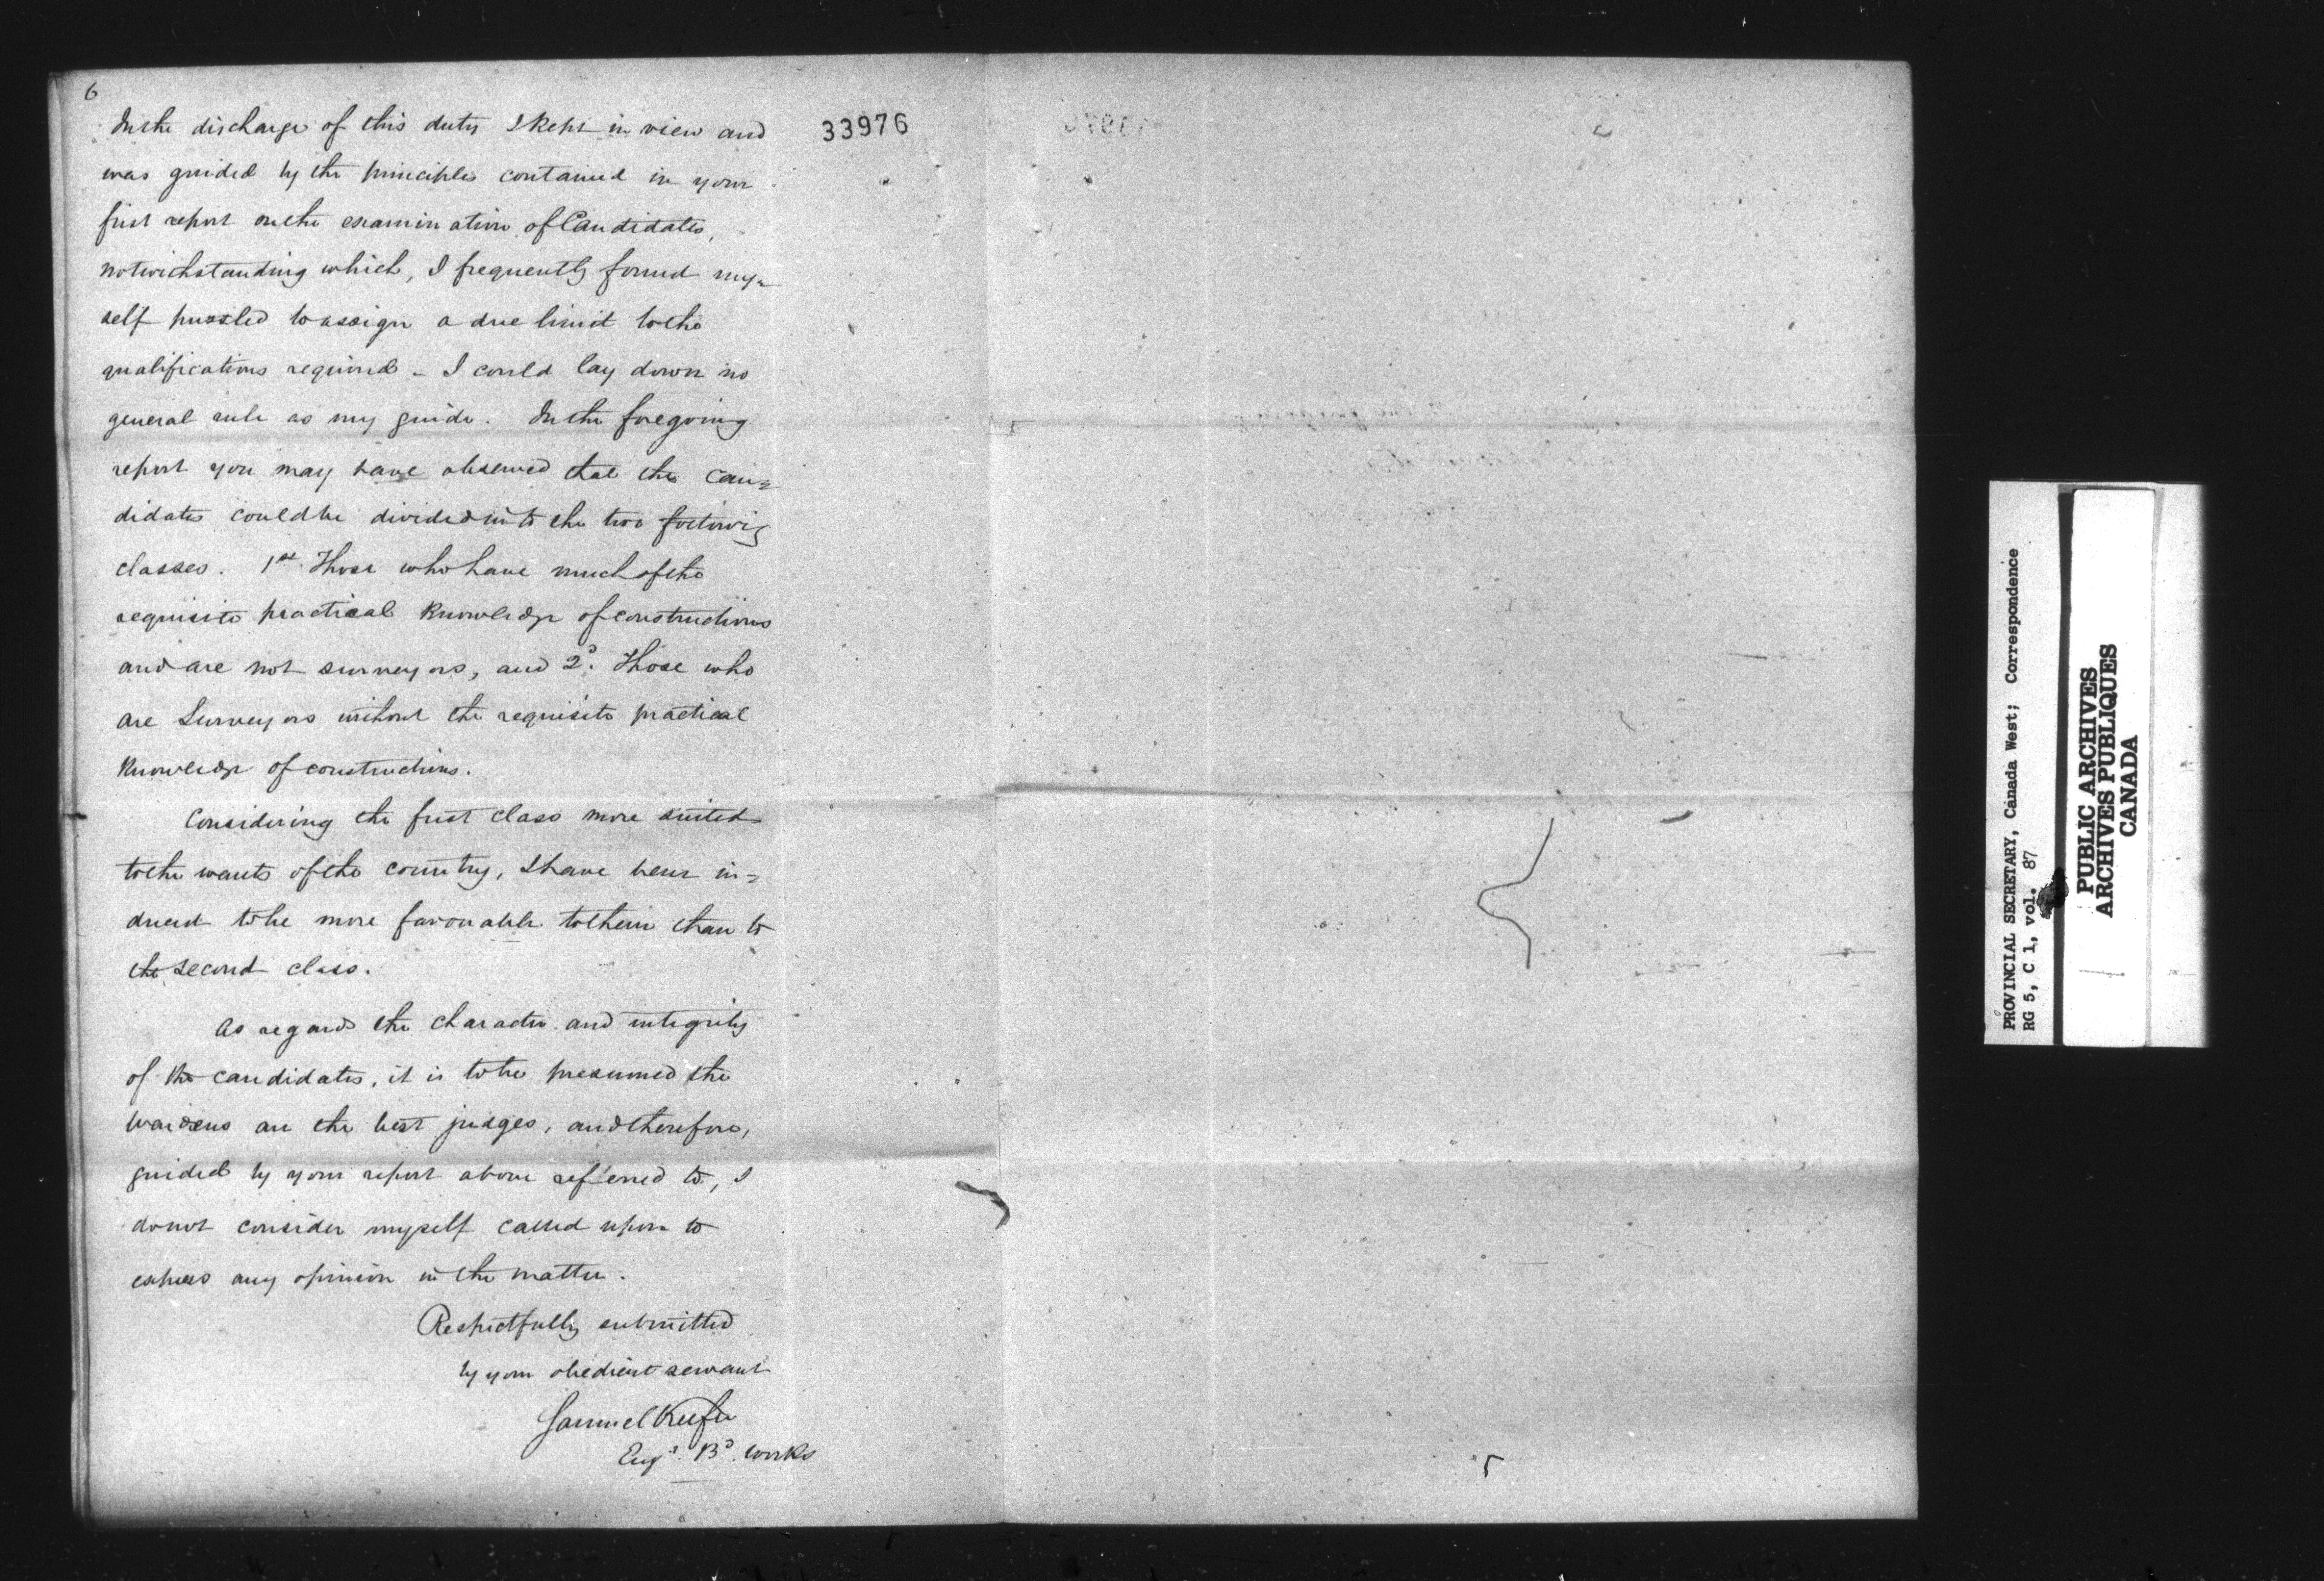 6
In the discharge of this duty I kept in view and
33976
was guided by the principles contained in your
first report on the examination of Candidates,
notwithstanding which, I frequently found my=
self puzzled to assign a due limit to the
qualifications required – I could lay down no
general rule as my guide. In the foregoing
report you may have observed that the can=
didates could be divided into the two following
classes. 1st Those who have much of the
requisite practical knowledge of constructions
and are not surveyors, and 2d. Those who
are Surveyors without the requisite practical
knowledge of constructions.
Considering the first class more suited
to the wants of the country, I have been in=
duced to be more favourable to them than to
the second class.
As regards the character and integrity
of the candidates, it is to be presumed the
Wardens are the best judges, and therefore,
guided by your report above referred to, I
do not consider myself called upon to
express any opinion in the matter.
Respectfully submitted
by your obedient servant
Samuel Keefer
Engr. Bd. Works
PROVINCIAL SECRETARY, Canada West; Correspondence
RG 5, C 1, vol. 87
PUBLIC ARCHIVES
ARCHIVES PUBLIQUES
CANADA